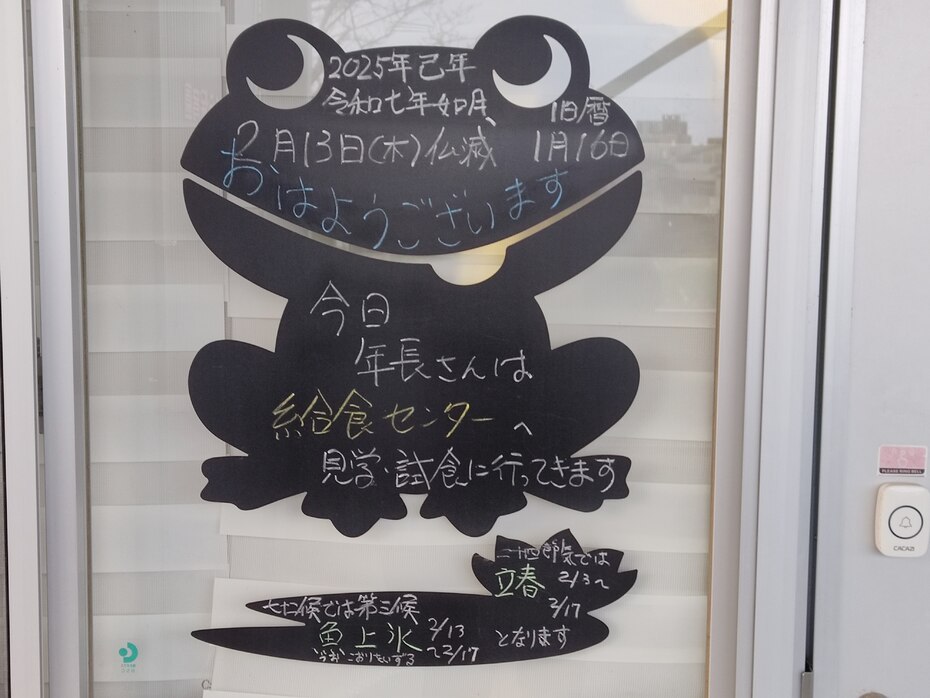 2025年己年
令和七年如月、
旧暦
2月13日(木)仏滅 1月16日
おはようございます
今日
年長さんは
給食センターへ
見学・試食に行ってきます
二十四節気では
立春 2/3〜
2/17
となります
七十二候では第三候
魚上氷 2/13
〜2/17
うおこおりをいずる
PLEASE RING BELL
CACAZI